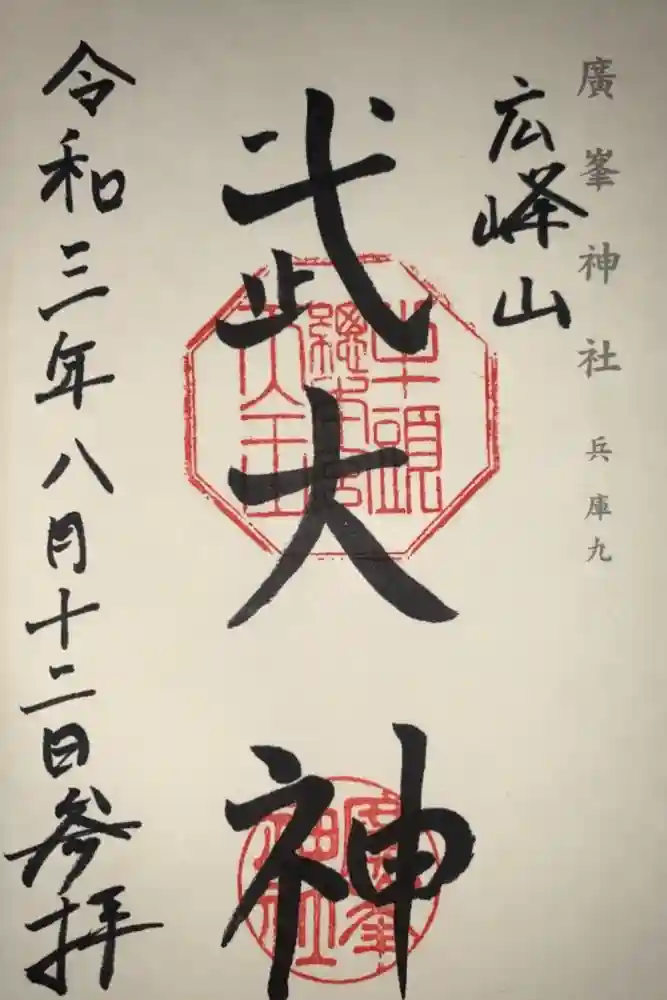 廣峯神社 兵庫九
広峰山
武大神
牛頭
総本宮
天王
廣峯
神社
令和三年八月十二日参拝